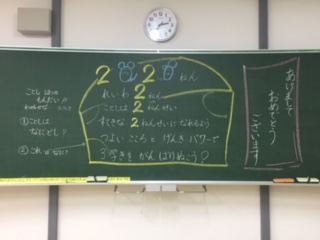 2020ねん
れいわ2ねん
ことしは2ねんせい
すてきな2ねんせいになれるよう
つよいこころとげんきパワーで
3学きをがんばりぬこう♡
ことし はつの
もんだい!!
①ことしは
なにどし?
②これは なに?
あけまして
おめでとう
ございます